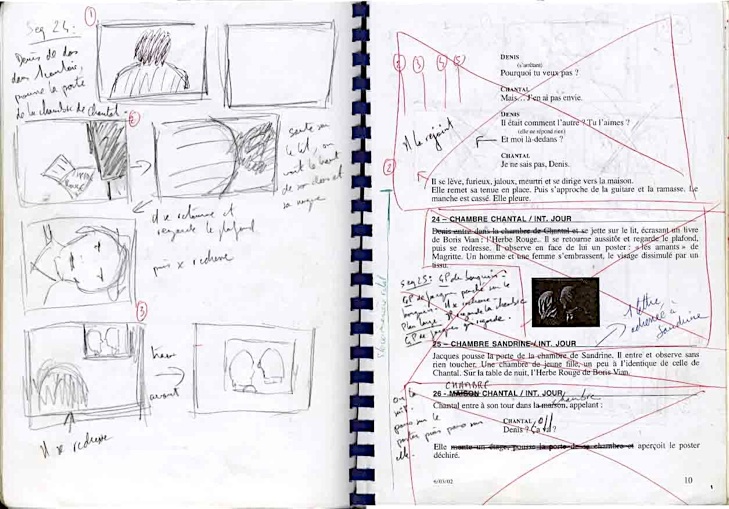 Seq 24.
①
Denis de dos
dans
pousse la porte
de la chambre de Chantal.
②
saute sur
le lit, on
voit le haut
de son dos et
sa nuque
Il se retourne et
regarde le plafond
puis se redresse
③
trav
avant
Il se redresse
② ③ ④ ⑤
DENIS
(s'arrêtant)
Pourquoi tu veux pas ?
CHANTAL
Mais... J'en ai pas envie.
DENIS
Il était comment l'autre ? Tu l'aimes ?
(elle ne répond rien)
Et moi là-dedans ?
Il le rejoint
CHANTAL
Je ne sais pas, Denis.
②
Il se lève, furieux, jaloux, meurtri et se dirige vers la maison.
Elle remet sa tenue en place. Puis s'approche de la guitare et la ramasse. Le
manche est cassé. Elle pleure.
24 – CHAMBRE CHANTAL / INT. JOUR
Denis entre dans la chambre de Chantal et se jette sur le lit, écrasant un livre
de Boris Vian : l'Herbe Rouge.. Il se retourne aussitôt et regarde le plafond,
puis se redresse. Il observe en face de lui un poster : « les amants » de
Magritte. Un homme et une femme s'embrassent, le visage dissimulé par un
tissu.
Seq 25: GP du bouquin.
GP de Jacques penché sur le
bouquin. Il se redresse
Plan large. Il regarde la chambre
GP de Jacques qui regarde.
1 lettre
adressée à
Sandrine
25 – CHAMBRE SANDRINE / INT. JOUR
Jacques pousse la porte de la chambre de Sandrine. Il entre et observe sans
rien toucher. Une chambre de jeune fille, un peu à l'identique de celle de
Chantal. Sur la table de nuit, l'Herbe Rouge de Boris Vian.
CHAMBRE
26 – MAISON CHANTAL / INT. JOUR
chambre
Chantal entre à son tour dans la maison, appelant :
CHANTAL off
Denis ? Ça va ?
on la
suit
pano sur le
poster puis pano sur
elle.
Elle monte un étage, pousse la porte de sa chambre et aperçoit le poster
déchiré.
4/03/02
10